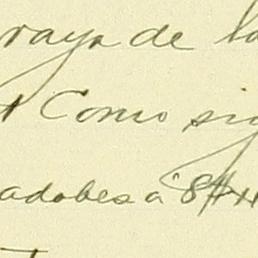 raya de la
Como sig
adobes a $